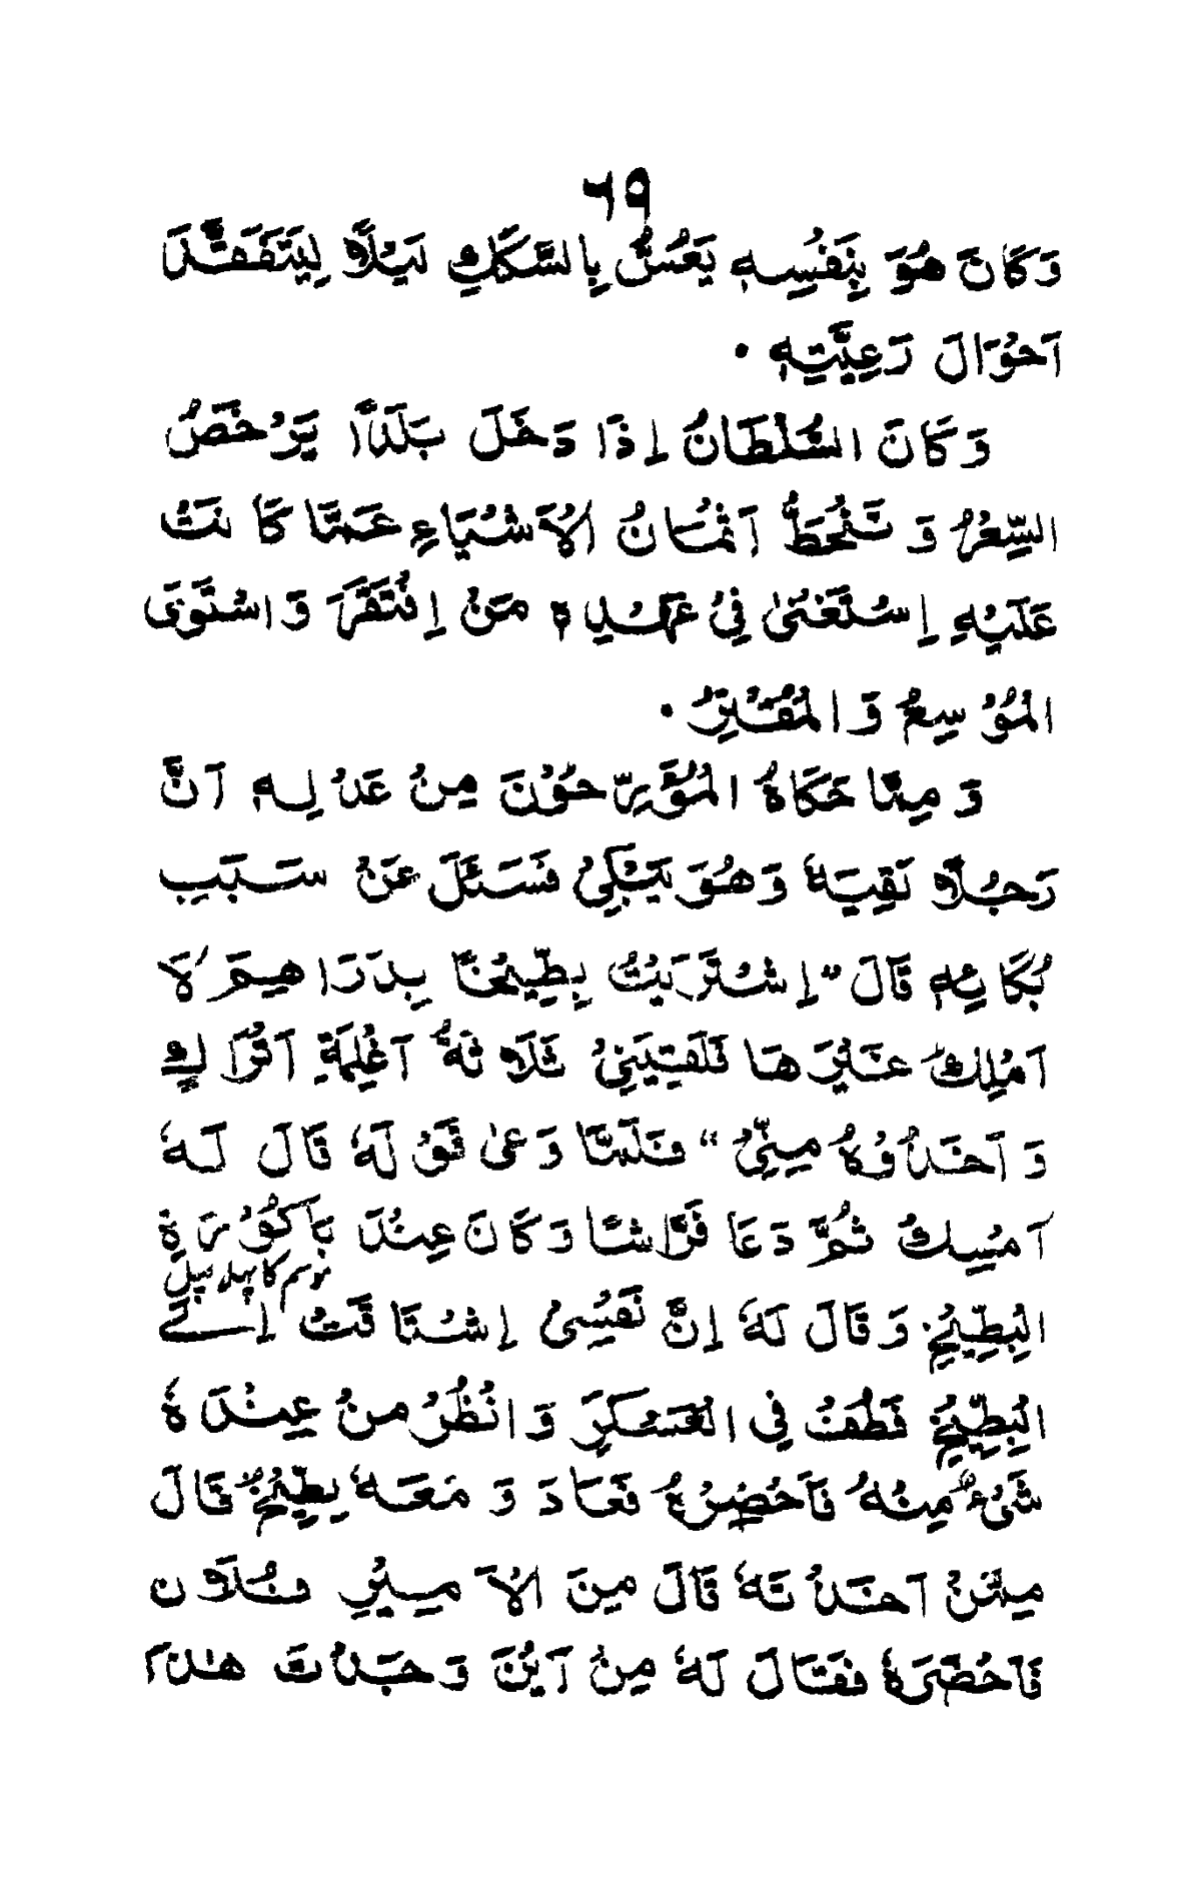 ٦٩
وَكَانَ هُوَ بِنَفْسِهٖ يَعُسُّ بِالسِّكَكِ لَيْلًا لِيَتَفَقَّدَ
اَحْوَالَ رَعِيَّتِهٖ ۰
وَكَانَ السُّلْطَانُ اِذَا دَخَلَ بَلَدًا يَرْخَصُ
السِّعْرُ وَ تَنْحَطُّ اَثْمَانُ الْاَشْيَاءِ عَمَّا كَانَتْ
عَلَيْهِ اِسْتَغْنٰى فِيْ عَهْدِهٖ مَنْ اِفْتَقَرَ وَاسْتَوَى
الْمُوْسِعُ وَالْمُقْتِرُ ۰
وَ مِمَّا حَكَاهُ الْمُؤَرِّخُوْنَ مِنْ عَدْلِهٖ اَنَّ
رَجُلًا لَقِيَهٗ وَهُوَ يَبْكِيْ فَسَئَلَ عَنْ سَبَبِ
بُكَائِهٖ قَالَ "اِشْتَرَيْتُ بِطِّيْخًا بِدَرَاهِيْمَ لَا
اَمْلِكُ غَيْرَهَا فَلَقِيَنِيْ ثَلَاثَةُ اَغْلِمَةِ اَتْرَاكٍ
وَ اَخَذُوْهُ مِنِّيْ" فَلَمَّا وَعٰى قَوْلَهٗ قَالَ لَهٗ
اَمْسِكْ ثُمَّ دَعَا فَرَّاشًا وَكَانَ عِنْدَ بَاكُوْرَةِ
موسم کا پہلا پھل
الْبِطِّيْخِ وَقَالَ لَهٗ اِنَّ نَفْسِيْ اِشْتَاقَتْ اِلٰى
الْبِطِّيْخِ فَطُفْ فِي الْعَسْكَرِ وَانْظُرْ مَنْ عِنْدَهٗ
شَيْءٌ مِنْهُ فَاَحْضِرْهُ فَعَادَ وَ مَعَهٗ بِطِّيْخٌ قَالَ
مِمَّنْ اَخَذْتَهٗ قَالَ مِنَ الْاَمِيْرِ فُلَانٍ
فَاَحْضَرَهٗ فَقَالَ لَهٗ مِنْ اَيْنَ وَجَدْتَ هٰذَا